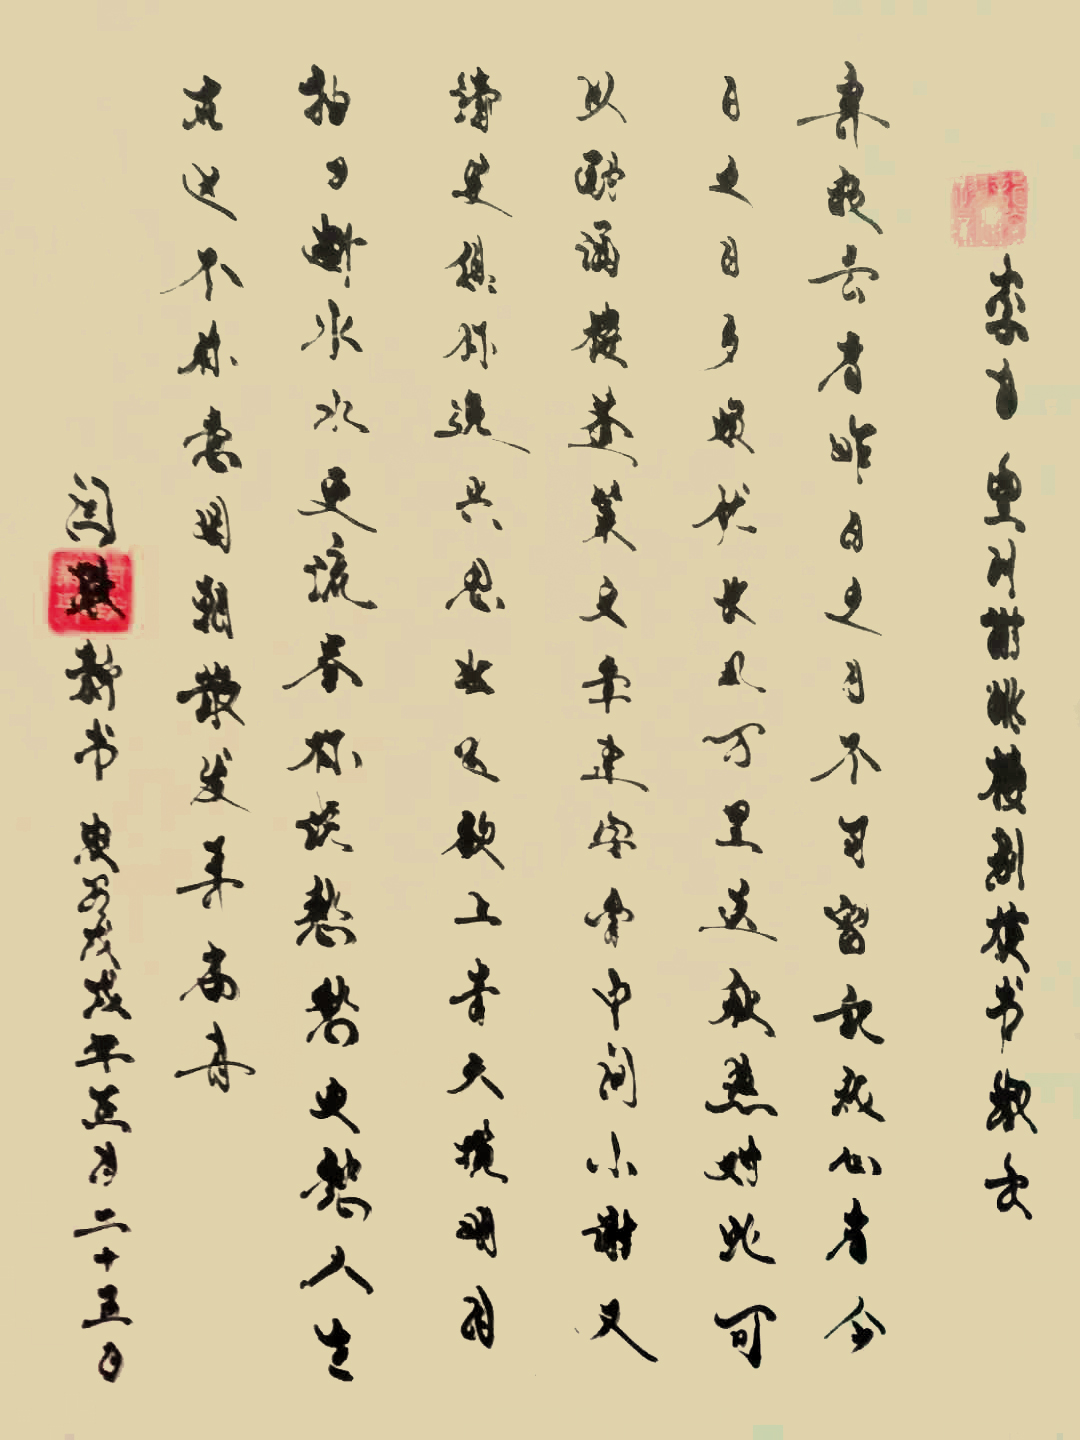 李白 宣州谢朓楼别校书叔云
弃我去者昨日之日不可留乱我心者今
日之日多烦忧长风万里送秋雁对此可
以酣高楼蓬莱文章建安骨中间小谢又
清发俱怀逸兴思壮飞欲上青天揽明月
抽刀断水水更流举杯消愁愁更愁人生
在世不称意明朝散发弄扁舟
闫 静书 戊戌年正月二十五日